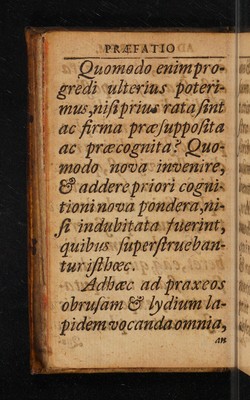 PRÆFATIO
Quomodo enim pro-
gredi ulterius poteri-
mus, nisi prius rata sint
ac firma præsupposita
ac præcognita? Quo-
modo nova invenire,
& addere priori cogni-
tioni nova pondera, ni-
si indubitata fuerint,
quibus superstrueban-
tur isthæc.
Adhæc ad praxeos
obrusam & lydium la-
pidem vocanda omnia,
an